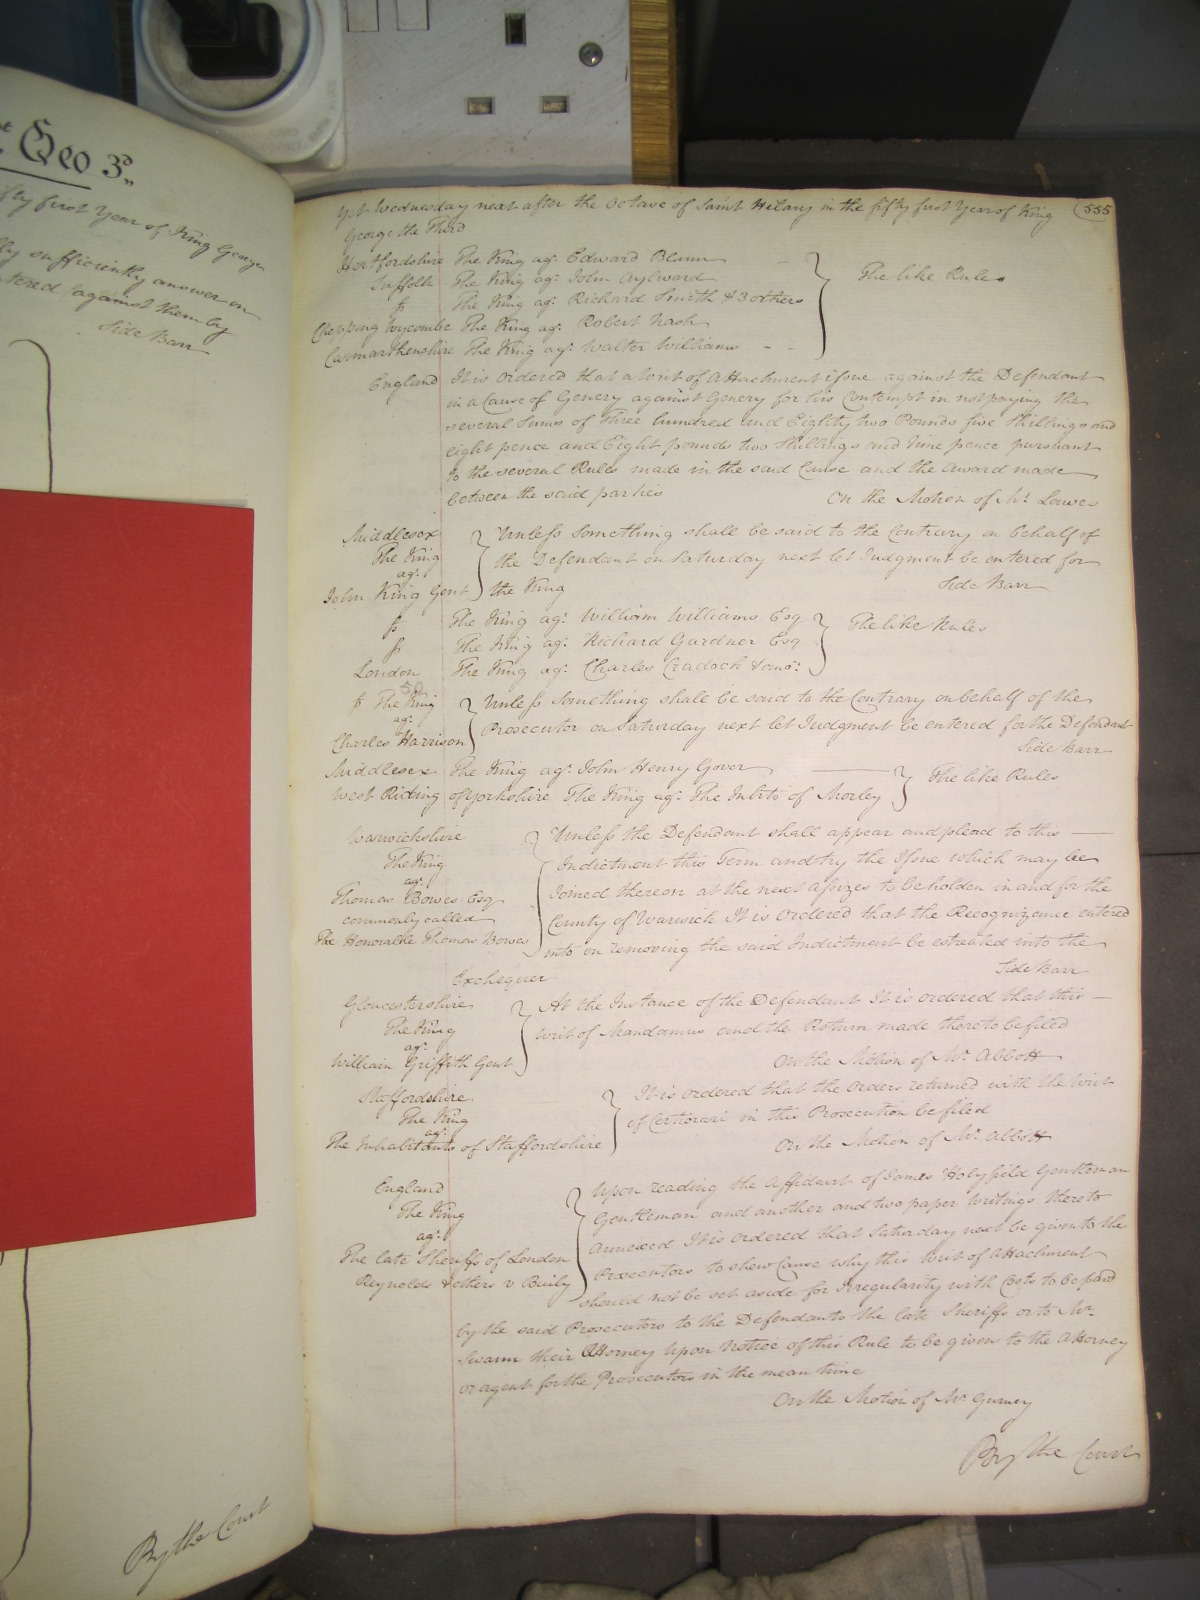 Geo 3d
fifty first Year of King George
sufficiently answer
against them by
Side Barr
By the Court
Yet Wednesday next after the Octave of Saint Hilary in the fifty first Year of King
555
George the Third
Hertfordshire The King agt. Edward Blunn
Suffolk The King agt. John Aylward
The like Rules
ss The King agt. Richard Smith & 3 others
Chepping Wycombe The King agt. Robert Nash
Carmarthenshire The King agt. Walter Williams
England It is ordered that a Writ of Attachment issue against the Defendant
in a Cause of Genery against Genery for his Contempt in not paying the
several Sums of Three hundred and Eighty two Pounds five Shillings and
eight pence and Eight pounds two Shillings and Nine pence pursuant
to the several Rules made in the said Cause and the Award made
between the said parties On the Motion of Mr. Lawes
Middlesex
The King
agt.
John King Gent
Unless something shall be said to the Contrary on behalf of
the Defendant on Saturday next let Judgment be entered for
the King Side Barr
ss The King agt. William Williams Esq
ss The King agt. Richard Gardner Esq
The like Rules
London The King agt. Charles Cradock & anor.
50
ss The King
agt.
Charles Harrison
Unless something shall be said to the Contrary on behalf of the
Prosecutor on Saturday next let Judgment be entered for the Defendant
Side Barr
Middlesex The King agt. John Henry Gover
The like Rules
West Riding of Yorkshire The King agt. The Inhts of Morley
Warwickshire
The King
agt.
Thomas Bowes Esq
commonly called
The Honorable Thomas Bowes
Unless the Defendant shall appear and plead to this
Indictment this Term and try the Issue which may be
Joined thereon at the next Assizes to be holden in and for the
County of Warwick It is ordered that the Recognizance entered
into on removing the said Indictment be estreated into the
Exchequer Side Barr
Gloucestershire
The King
agt.
William Griffith Gent
At the Instance of the Defendant It is ordered that this
Writ of Mandamus and the Return made thereto be filed
On the Motion of Mr. Abbott
Staffordshire
The King
agt.
The Inhabitants of Staffordshire
It is ordered that the Orders returned with the Writ
of Certiorari in this Prosecution be filed
On the Motion of Mr. Abbott
England
The King
agt.
The late Sheriffs of London
Reynolds & others v Buily
Upon reading the Affidavit of James Holyfield Gentleman
Gentleman and another and two paper Writings thereto
annexed It is ordered that Saturday next be given to the
Prosecutors to shew Cause why this Writ of Attachment
should not be set aside for Irregularity with Costs to be paid
by the said Prosecutors to the Defendants the late Sheriffs or to Mr.
Swann their Attorney Upon Notice of this Rule to be given to the Attorney
or agent for the Prosecutors in the mean time
On the Motion of Mr. Gurney
By the Court